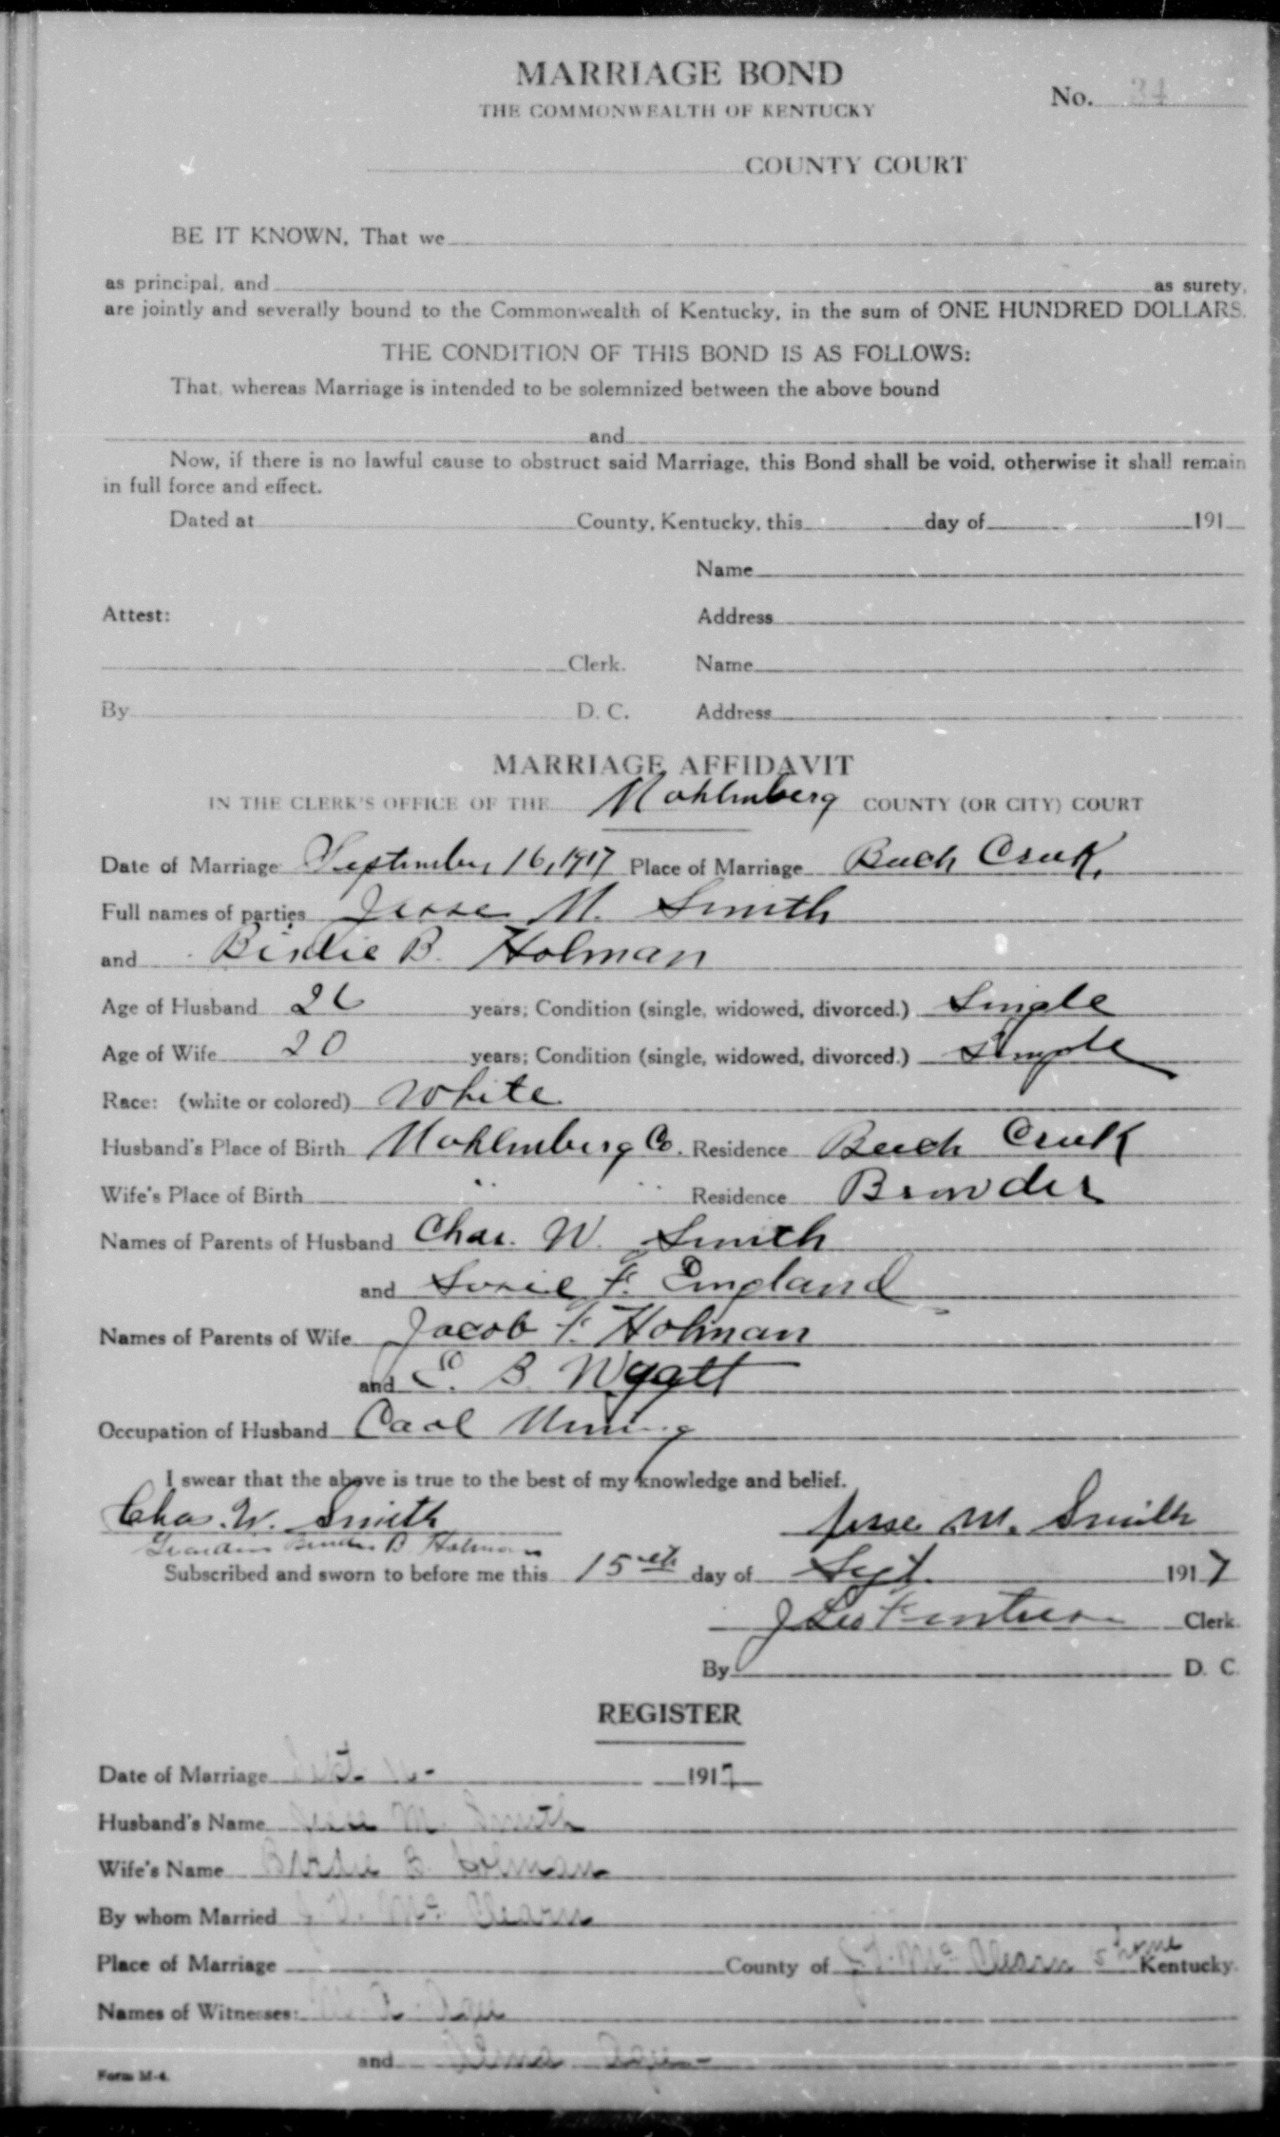 MARRIAGE BOND
THE COMMONWEALTH OF KENTUCKY
No.
COUNTY COURT
BE IT KNOWN, That we
as principal, and as surety,
are jointly and severally bound to the Commonwealth of Kentucky, in the sum of ONE HUNDRED DOLLARS.
THE CONDITION OF THIS BOND IS AS FOLLOWS:
That, whereas Marriage is intended to be solemnized between the above bound
and
Now, if there is no lawful cause to obstruct said Marriage, this Bond shall be void, otherwise it shall remain
in full force and effect.
Dated at County, Kentucky, this day of 191
Name
Attest: Address
Clerk. Name
By D. C. Address
MARRIAGE AFFIDAVIT
IN THE CLERK'S OFFICE OF THE Mohlenberg COUNTY (OR CITY) COURT
Date of Marriage September 16, 1917 Place of Marriage Beech Creek,
Full names of parties Jesse M. Smith
and Birdie B. Holman
Age of Husband 26 years; Condition (single, widowed, divorced.) Single
Age of Wife 20 years; Condition (single, widowed, divorced.) Single
Race: (white or colored) White
Husband's Place of Birth Mohlenberg Co. Residence Beech Creek
Wife's Place of Birth " " Residence Browder
Names of Parents of Husband Chas. W. Smith
and Susie F. England
Names of Parents of Wife Jacob F. Holman
and E. B. Wyatt
Occupation of Husband Coal Mining
I swear that the above is true to the best of my knowledge and belief.
Chas. W. Smith Jesse M. Smith
Guardian Birdie B Holman
Subscribed and sworn to before me this 15th day of Sept. 1917
Clerk.
By D. C.
REGISTER
Date of Marriage Sept. 16 - 1917
Husband's Name Jesse M. Smith
Wife's Name Birdie B. Holman
By whom Married Mc Clearn
Place of Marriage County of Mc Clearn s home Kentucky.
Names of Witnesses:
and
Form M-4.